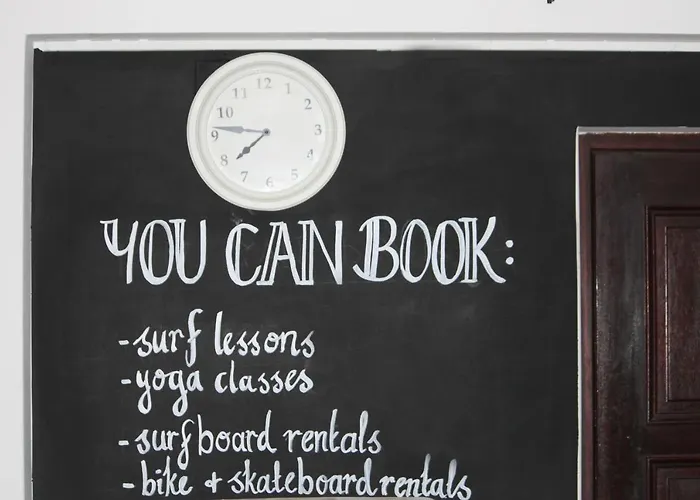 12
11 1
10 2
9 3
8 4
7 5
6
YOU CAN BOOK:
-surf lessons
-yoga classes
-surfboard rentals
-bike + skateboard rentals